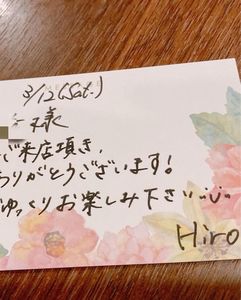 3/12(Sat.)
様
ご来店頂き、
ありがとうございます!
ゆっくりお楽しみ下さい
Hiro